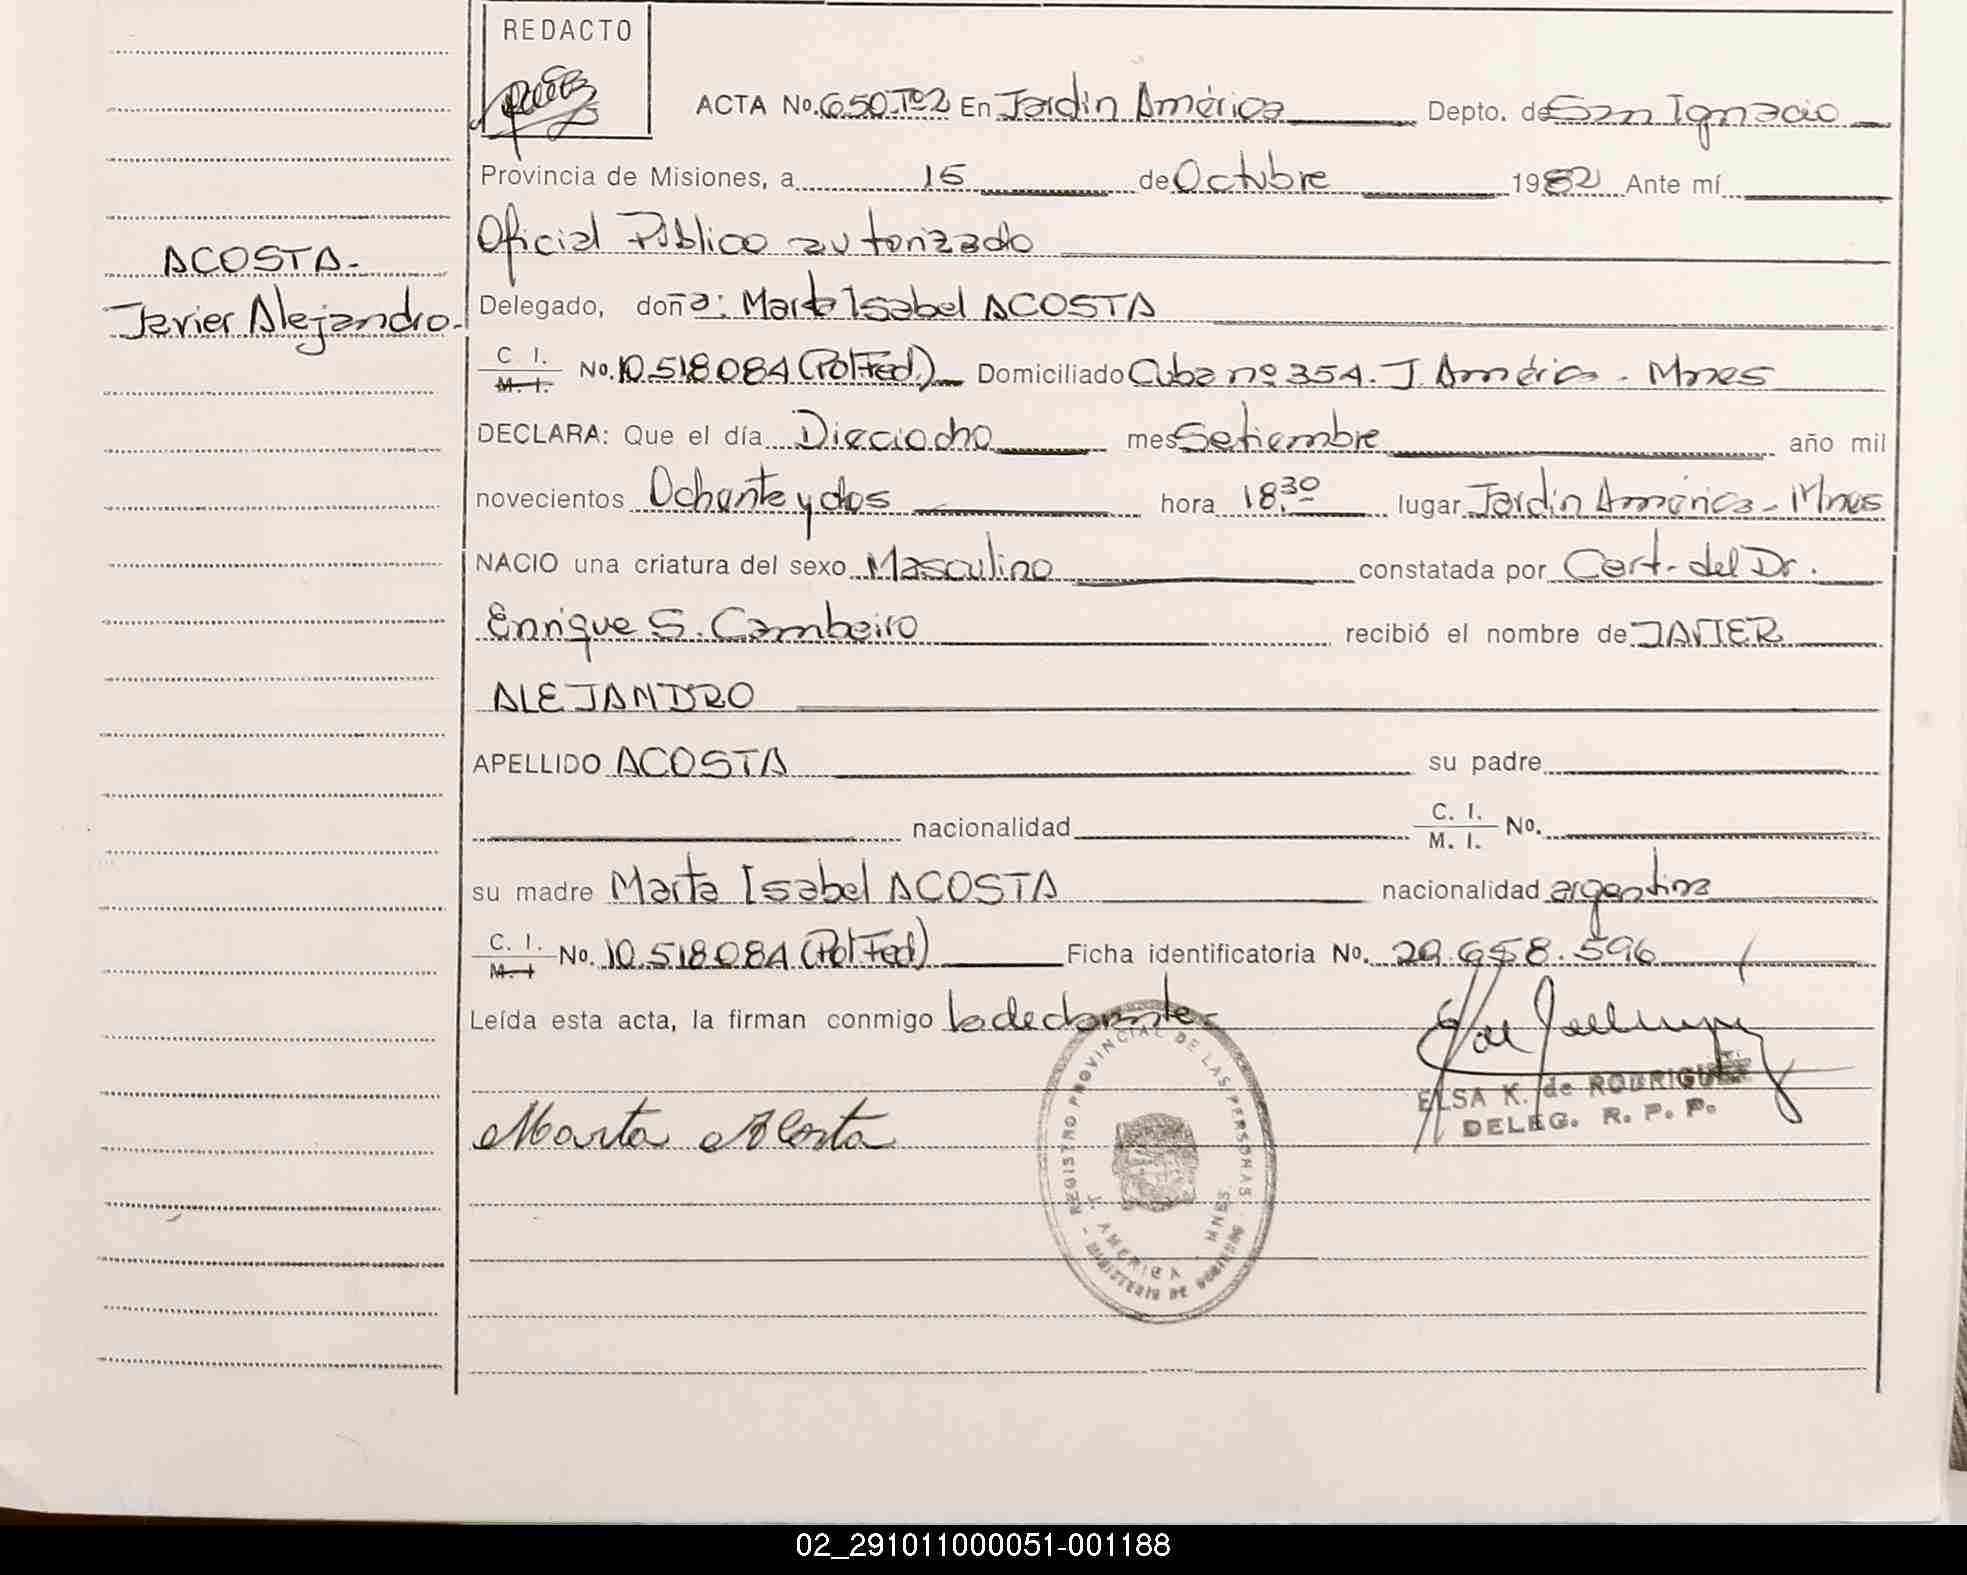 REDACTO
ACTA No. 650-Tº2 En Jardin América Depto. de San Ignacio
Provincia de Misiones, a 15 de Octubre 1982 Ante mí
Oficial Público autorizado
ACOSTA-
Delegado, doña: Marta Isabel ACOSTA
Javier Alejandro.-
C. I. M. I. No. 10.518.084 (Pol Fed.) Domiciliado Cuba nº 354. J. América - Mnes
DECLARA: Que el día Dieciocho mes Setiembre año mil
novecientos Ochenta y dos hora 18.30 lugar Jardin América - Mnes
NACIO una criatura del sexo Masculino constatada por Cert. del Dr.
Enrique S. Cambeiro recibió el nombre de JAVIER
ALEJANDRO
APELLIDO ACOSTA su padre
nacionalidad C. I. M. I. No.
su madre Marta Isabel ACOSTA nacionalidad argentina
C. I. M. I No. 10.518.084 (Pol Fed) Ficha identificatoria No. 29.658.596
Leída esta acta, la firman conmigo la declarante-
ELSA K. de RODRIGUEZ
DELEG. R. P. P.
Marta Acosta
REGISTRO PROVINCIAL DE LAS PERSONAS
J. AMERICA - MNES.
- MINISTERIO DE GOBIERNO -
02_291011000051-001188